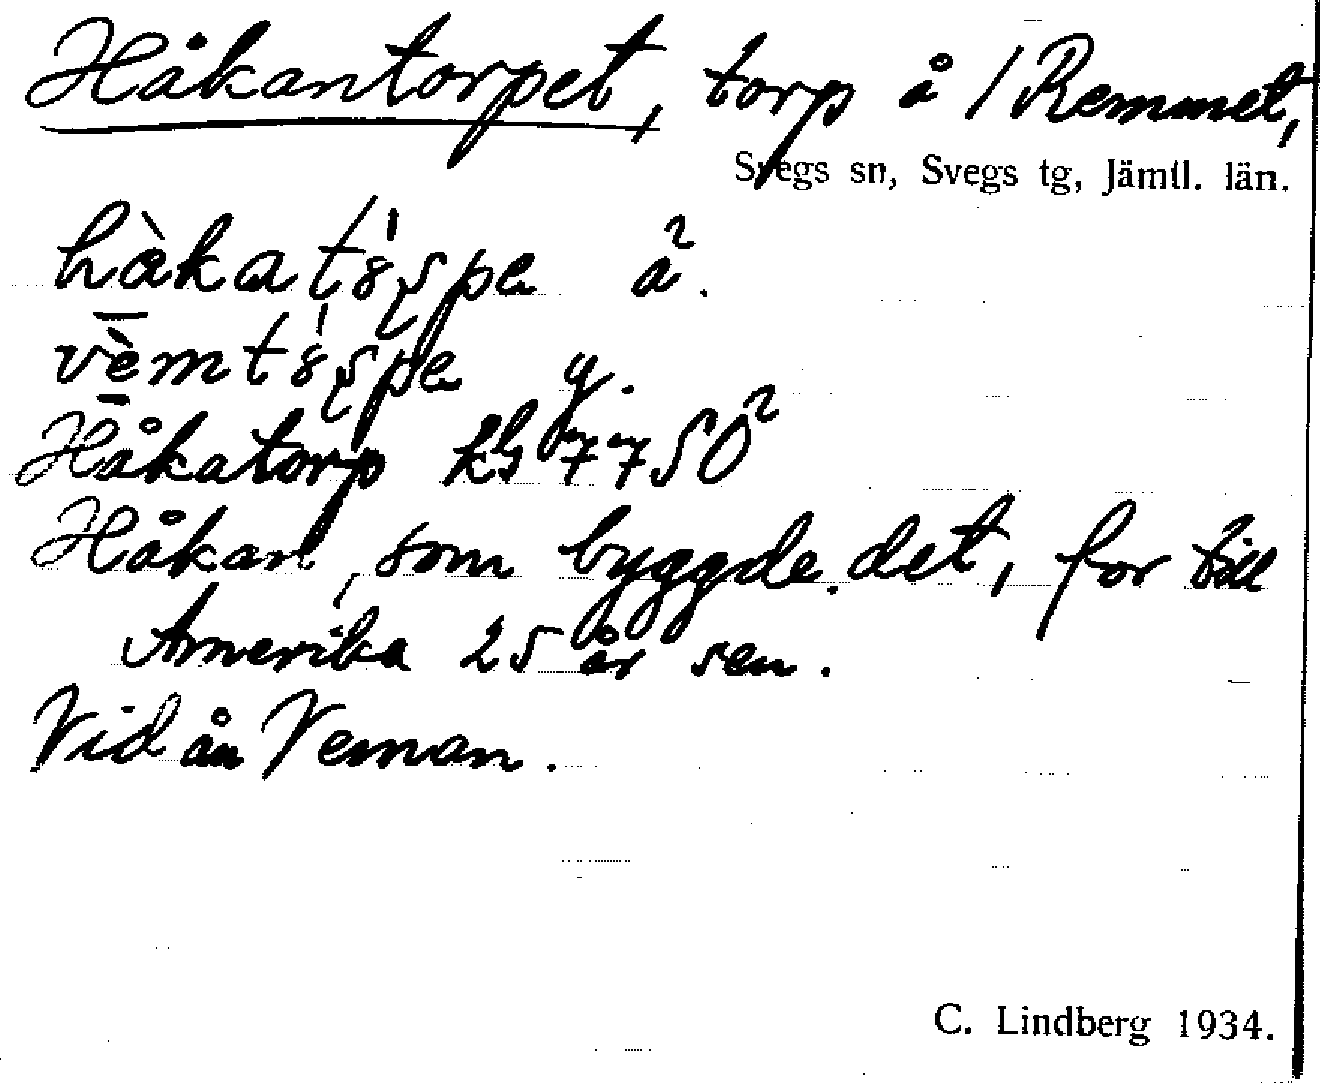 Håkantorpet, torp å /Remmet,
Svegs sn, Svegs tg, Jämtl. län.
Håkatorp kb 77 SO²
Håkan, som byggde det, for till
Amerika 25 år sen.
Vid ån Veman.
C. Lindberg 1934.